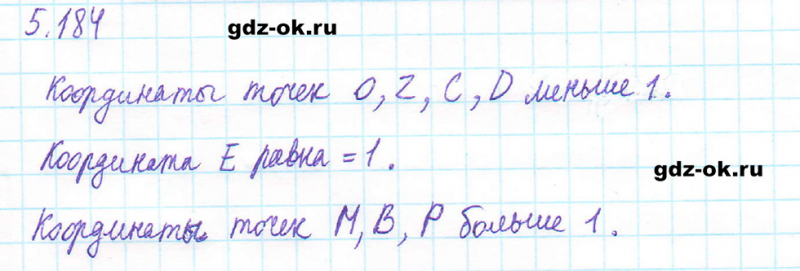 5.184
gdz-ok.ru
Координаты точек O, Z, C, D меньше 1.
Координата E равна = 1.
gdz-ok.ru
Координаты точек M, B, P больше 1.